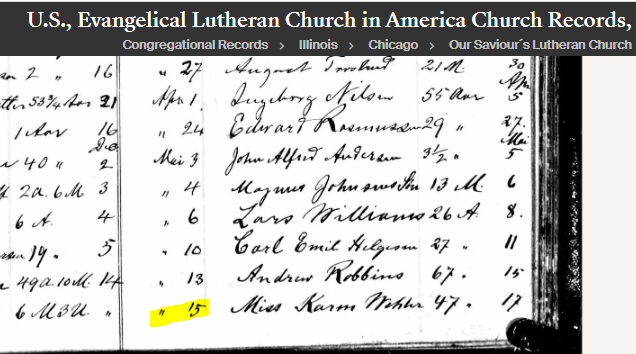 U.S., Evangelical Lutheran Church in America Church Records,
Congregational Records > Illinois > Chicago > Our Saviour´s Lutheran Church
2 " 16 " 27 August 21 M. 30
53¾ Aar 21 Apr 1 Ingeborg Nilsen 55 Aar Apr 5
1 Aar 16 " 24 Edward Rasmussen 29 " 27.
40 " Dec 2 Mai 3 John Alfred Andersen 3½ " Mai 5
2 a. 6 M 3 " 4 Magnus 13 M. 6
6 A. 4 " 6 Lars Williams 26 A. 8.
19. 5 " 10 Carl Emil Helgesen 27 " 11
49 a. 10 M. 14 " 13 Andrew Robbins 67. " 15
6 M 3 U. " " 15 Miss Karen 47. " 17